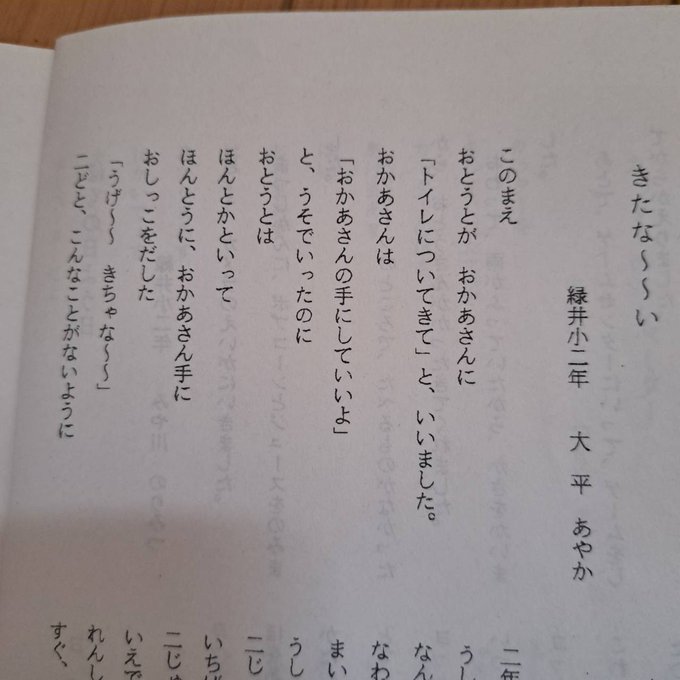 きたな～～い
緑井小二年 大平 あやか
このまえ
おとうとが おかあさんに
「トイレについてきて」と、いいました。
おかあさんは
「おかあさんの手にしていいよ」
と、うそでいったのに
おとうとは
ほんとかといって
ほんとうに、おかあさん手に
おしっこをだした
「うげ～～ きちゃな～～」
二どと、こんなことがないように
二年
うし
なん
なわ
まい
うし
二じ
いちば
二じゅ
いえで
れんし
すぐ、